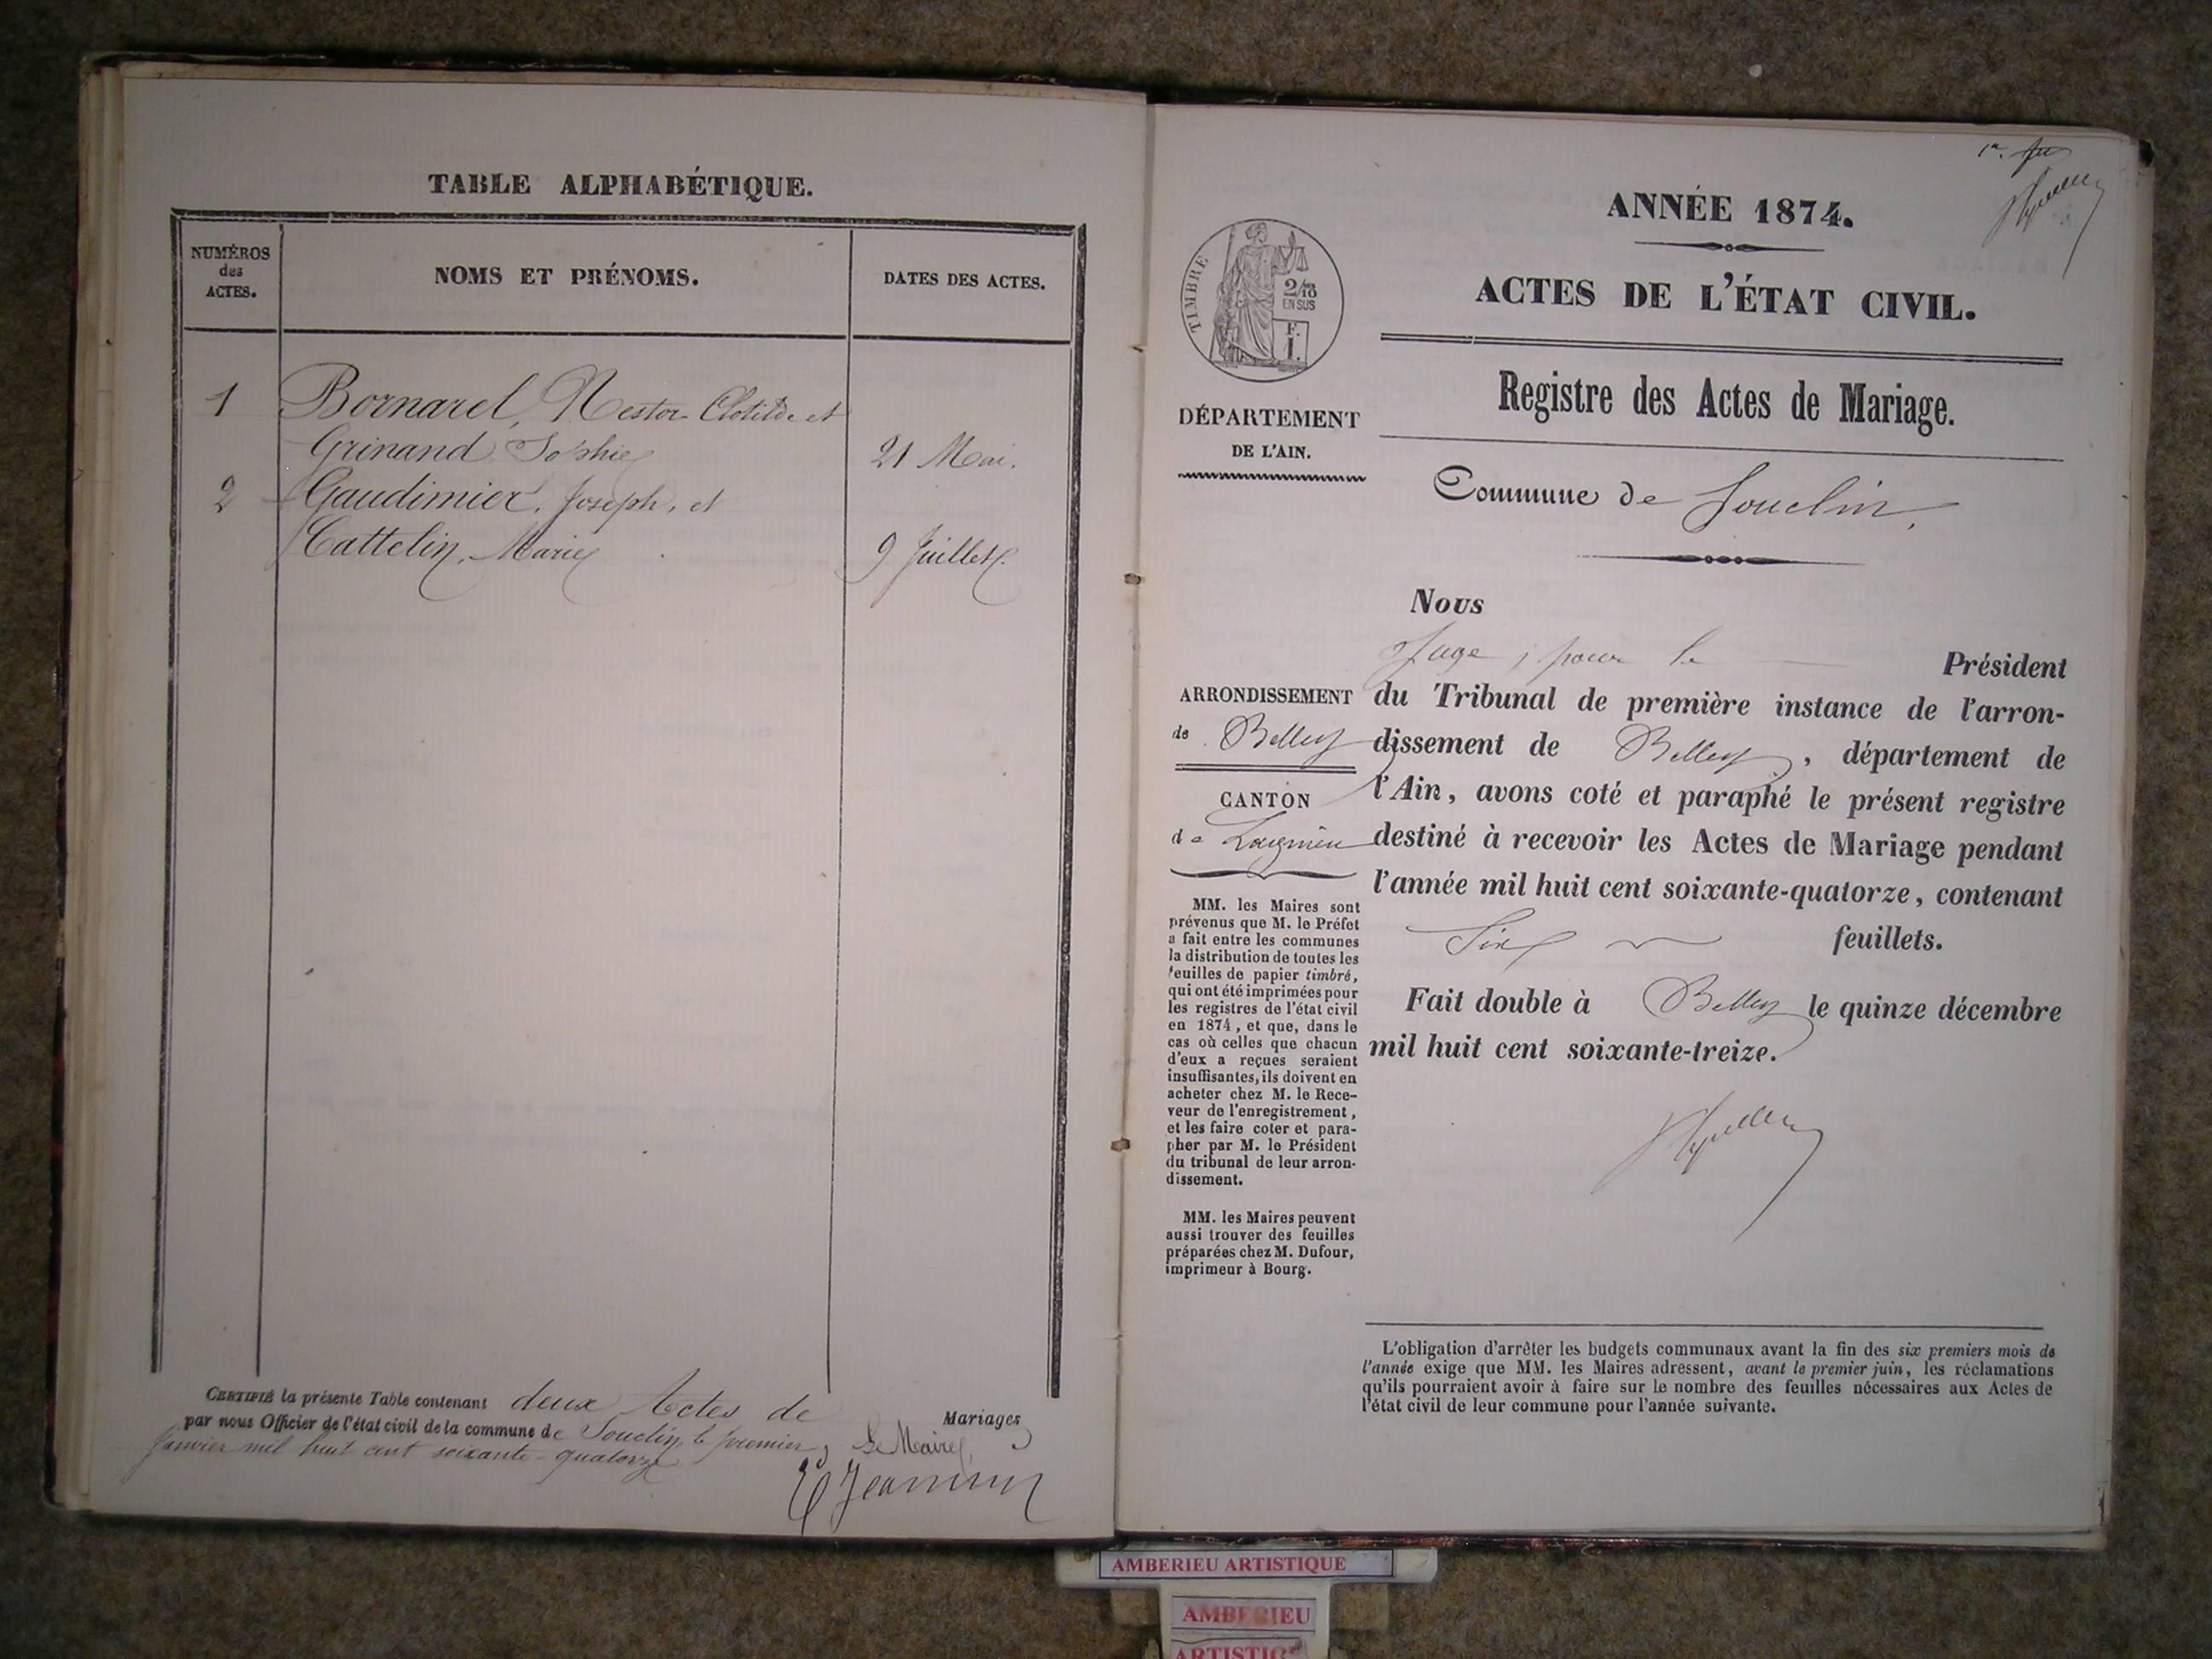 TABLE ALPHABÉTIQUE.
NUMÉROS
des
ACTES.
NOMS ET PRÉNOMS.
DATES DES ACTES.
1 Bornarel, Nestor Clotilde et
Grinand Sophie 21 Mai.
2 Gaudimier, Joseph, et
Cattelin, Marie 9 Juillet.
CERTIFIÉ la présente Table contenant deux Actes de Mariages
par nous Officier de l'état civil de la commune de Souclin, le premier
Janvier mil huit cent soixante-quatorze
Le Maire,
Jeannin
1er
ANNÉE 1874.
ACTES DE L'ÉTAT CIVIL.
TIMBRE
2/10
EN SUS
F.
1.
Registre des Actes de Mariage.
DÉPARTEMENT
DE L'AIN.
Commune de Souclin.
ARRONDISSEMENT
de Belley
CANTON
de Lagnieu
MM. les Maires sont
prévenus que M. le Préfet
a fait entre les communes
la distribution de toutes les
feuilles de papier timbré,
qui ont été imprimées pour
les registres de l'état civil
en 1874, et que, dans le
cas où celles que chacun
d'eux a reçues seraient
insuffisantes, ils doivent en
acheter chez M. le Rece-
veur de l'enregistrement,
et les faire coter et para-
pher par M. le Président
du tribunal de leur arron-
dissement.
MM. les Maires peuvent
aussi trouver des feuilles
préparées chez M. Dufour,
imprimeur à Bourg.
Nous
Juge, pour le Président
du Tribunal de première instance de l'arron-
dissement de Belley, département de
l'Ain, avons coté et paraphé le présent registre
destiné à recevoir les Actes de Mariage pendant
l'année mil huit cent soixante-quatorze, contenant
Six feuillets.
Fait double à Belley le quinze décembre
mil huit cent soixante-treize.
L'obligation d'arrêter les budgets communaux avant la fin des six premiers mois de
l'année exige que MM. les Maires adressent, avant le premier juin, les réclamations
qu'ils pourraient avoir à faire sur le nombre des feuilles nécessaires aux Actes de
l'état civil de leur commune pour l'année suivante.
AMBERIEU ARTISTIQUE
AMBERIEU
ARTISTIQUE